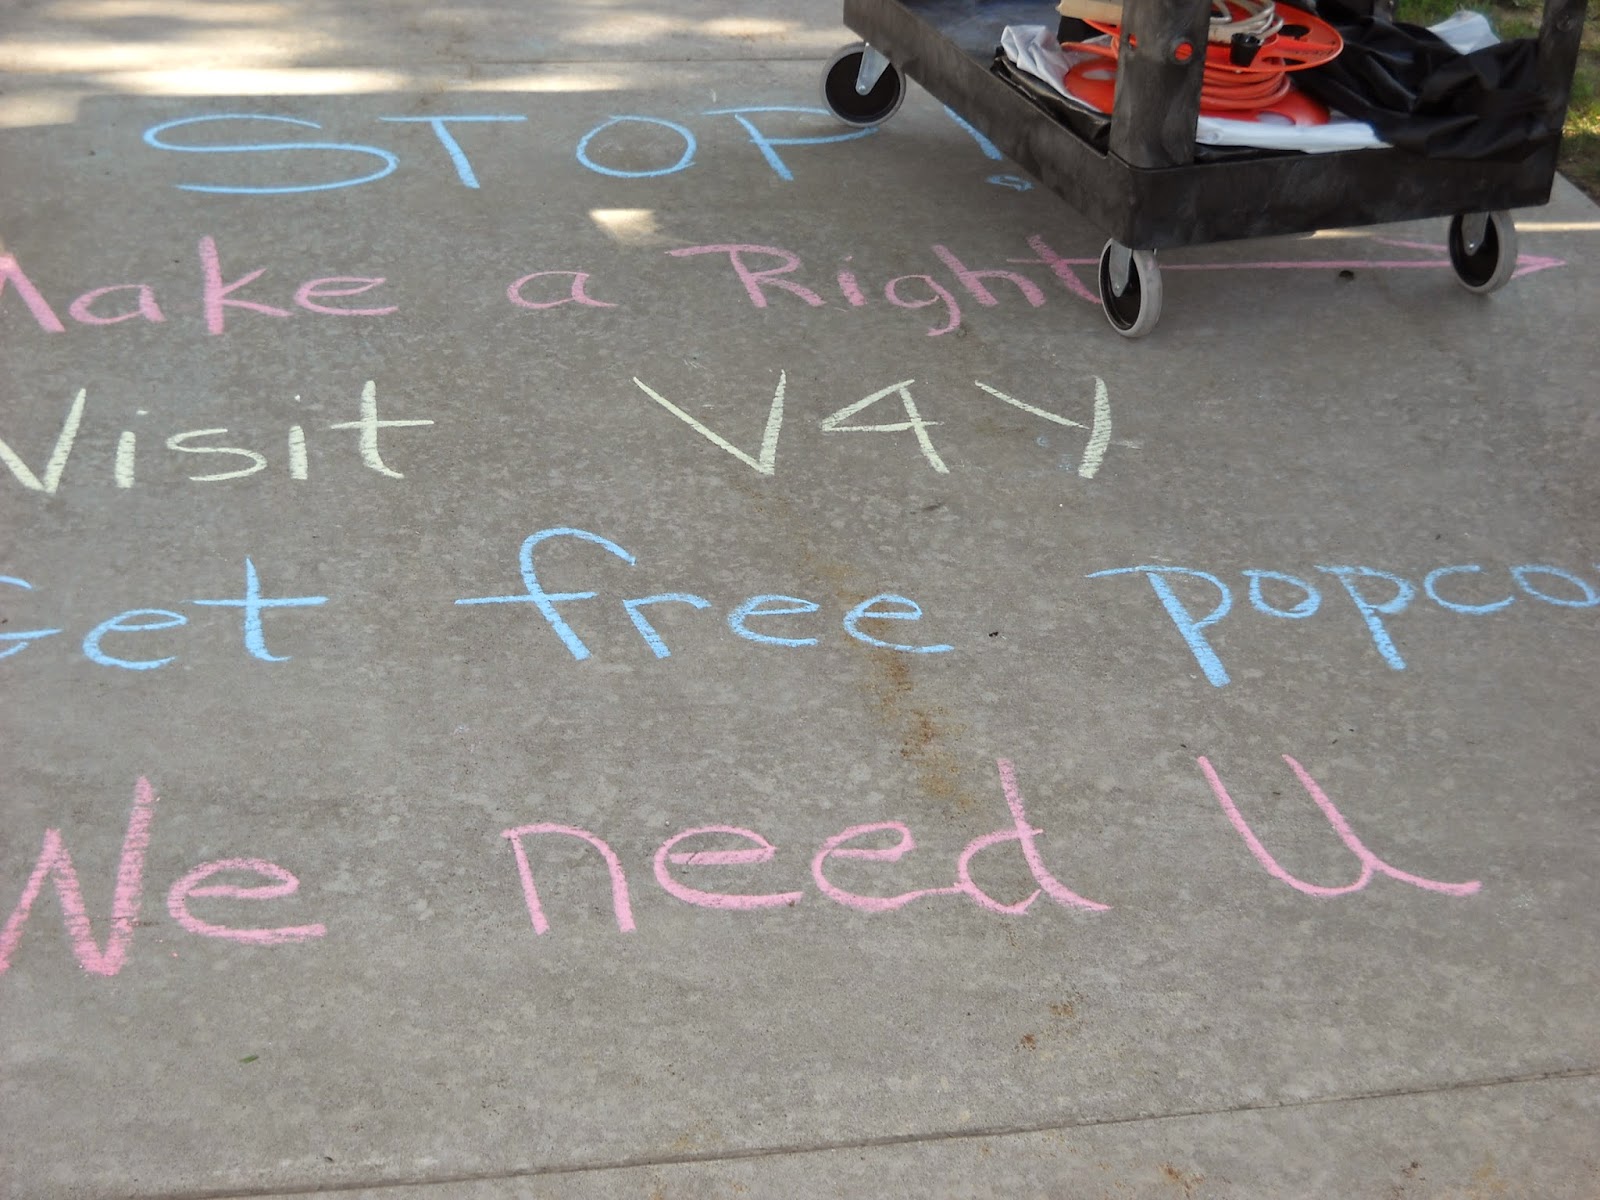 STOP!
Make a Right
Visit V4Y
Get free popco
We need U